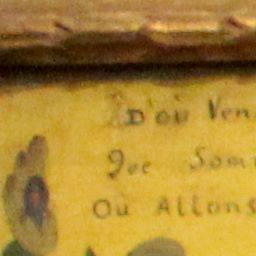 D'où Ven
Que Som
Où Allons